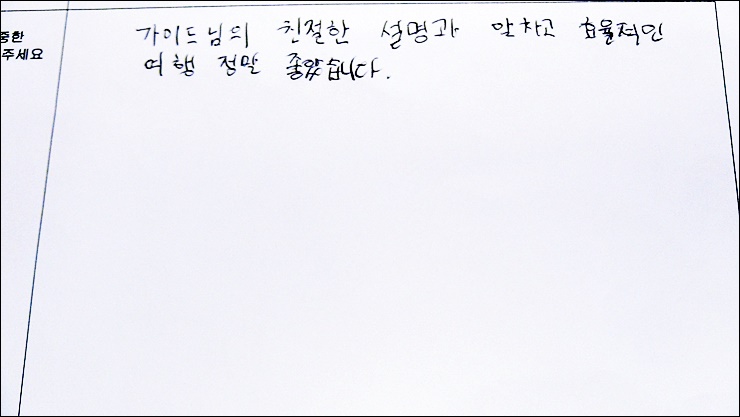 중한
주세요
가이드님의 친절한 설명과 알차고 효율적인
여행 정말 좋았습니다.